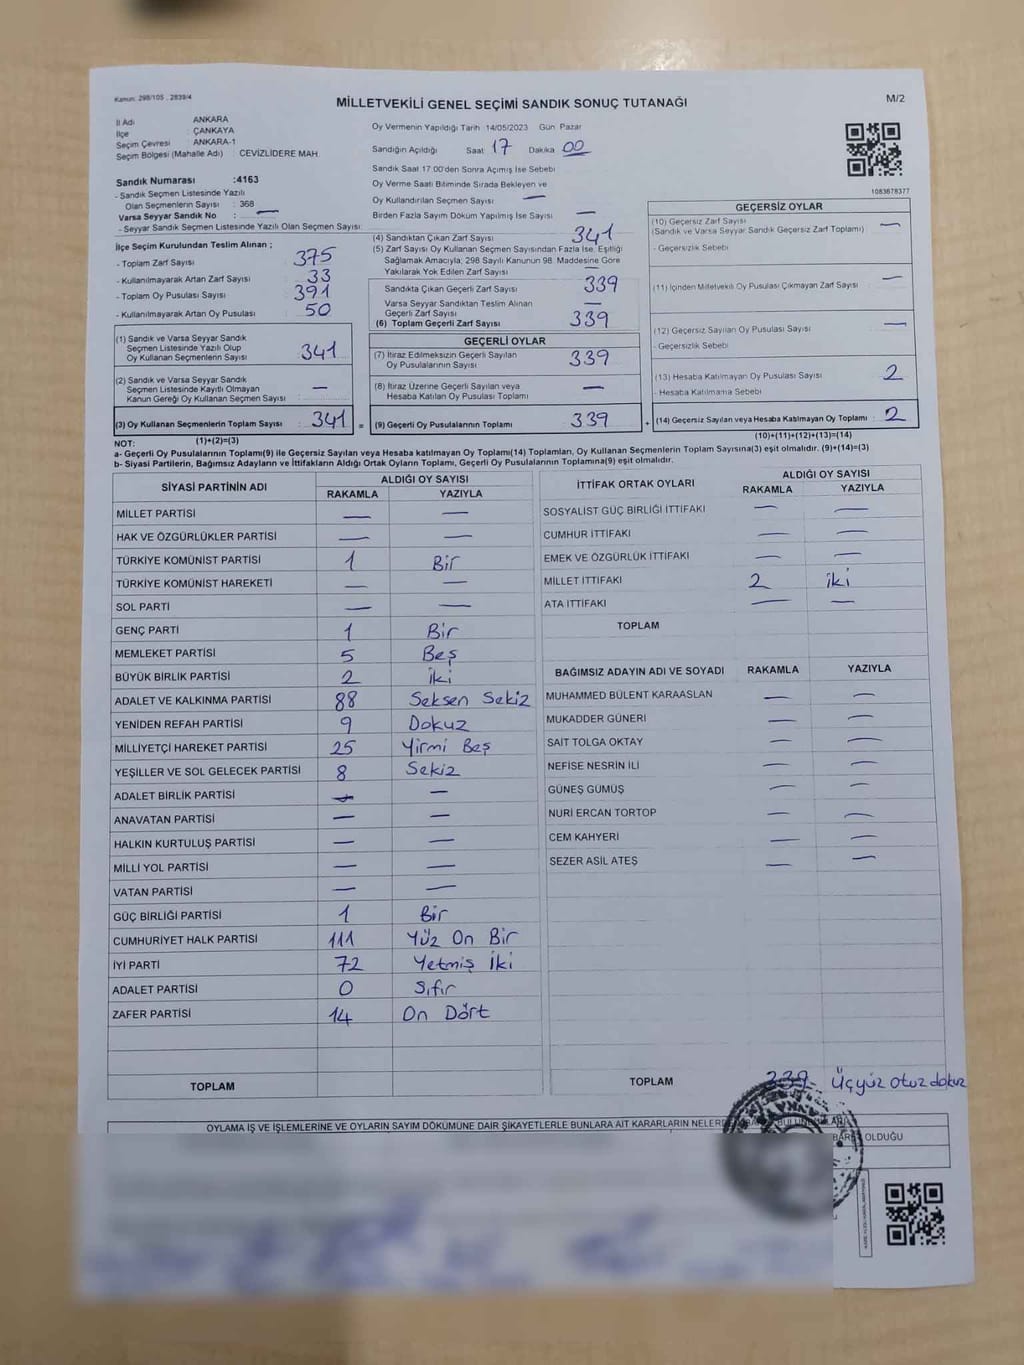 Kanun: 298/105 , 2839/4
MİLLETVEKİLİ GENEL SEÇİMİ SANDIK SONUÇ TUTANAĞI
M/2
İl Adı ANKARA
İlçe : ÇANKAYA
Seçim Çevresi : ANKARA-1
Seçim Bölgesi (Mahalle Adı) : CEVİZLİDERE MAH.
Oy Vermenin Yapıldığı Tarih 14/05/2023 Gün Pazar
Sandığın Açıldığı Saat 17 Dakika 00
Sandık Saat 17.00'den Sonra Açımış İse Sebebi
Oy Verme Saati Bitiminde Sırada Bekleyen ve
Oy Kullandırılan Seçmen Sayısı —
Birden Fazla Sayım Döküm Yapılmış İse Sayısı —
1083678377
Sandık Numarası :4163
- Sandık Seçmen Listesinde Yazılı
Olan Seçmenlerin Sayısı : 368
Varsa Seyyar Sandık No : —
- Seyyar Sandık Seçmen Listesinde Yazılı Olan Seçmen Sayısı:
İlçe Seçim Kurulundan Teslim Alınan ;
- Toplam Zarf Sayısı : 375
- Kullanılmayarak Artan Zarf Sayısı : 33
- Toplam Oy Pusulası Sayısı : 391
- Kullanılmayarak Artan Oy Pusulası : 50
(1) Sandık ve Varsa Seyyar Sandık
Seçmen Listesinde Yazılı Olup
Oy Kullanan Seçmenlerin Sayısı : 341
(2) Sandık ve Varsa Seyyar Sandık
Seçmen Listesinde Kayıtlı Olmayan
Kanun Gereği Oy Kullanan Seçmen Sayısı : —
(3) Oy Kullanan Seçmenlerin Toplam Sayısı : 341 =
(4) Sandıktan Çıkan Zarf Sayısı 341
(5) Zarf Sayısı Oy Kullanan Seçmen Sayısından Fazla İse, Eşitliği
Sağlamak Amacıyla; 298 Sayılı Kanunun 98. Maddesine Göre
Yakılarak Yok Edilen Zarf Sayısı —
Sandıkta Çıkan Geçerli Zarf Sayısı : 339
Varsa Seyyar Sandıktan Teslim Alınan
Geçerli Zarf Sayısı —
(6) Toplam Geçerli Zarf Sayısı : 339
GEÇERLİ OYLAR
(7) İtiraz Edilmeksizin Geçerli Sayılan
Oy Pusulalarının Sayısı : 339
(8) İtiraz Üzerine Geçerli Sayılan veya
Hesaba Katılan Oy Pusulası Toplamı : —
(9) Geçerli Oy Pusulalarının Toplamı : 339 +
GEÇERSİZ OYLAR
(10) Geçersiz Zarf Sayısı
(Sandık ve Varsa Seyyar Sandık Geçersiz Zarf Toplamı) : —
- Geçersizlik Sebebi
(11) İçinden Milletvekili Oy Pusulası Çıkmayan Zarf Sayısı : —
(12) Geçersiz Sayılan Oy Pusulası Sayısı : —
- Geçersizlik Sebebi
(13) Hesaba Katılmayan Oy Pusulası Sayısı : 2
- Hesaba Katılmama Sebebi
(14) Geçersiz Sayılan veya Hesaba Katılmayan Oy Toplamı : 2
NOT: (1)+(2)=(3) (10)+(11)+(12)+(13)=(14)
a- Geçerli Oy Pusulalarının Toplamı(9) ile Geçersiz Sayılan veya Hesaba katılmayan Oy Toplamı(14) Toplamları, Oy Kullanan Seçmenlerin Toplam Sayısına(3) eşit olmalıdır. (9)+(14)=(3)
b- Siyasi Partilerin, Bağımsız Adayların ve İttifakların Aldığı Ortak Oyların Toplamı, Geçerli Oy Pusulalarının Toplamına(9) eşit olmalıdır.
SİYASİ PARTİNİN ADI ALDIĞI OY SAYISI
RAKAMLA YAZIYLA
MİLLET PARTİSİ — —
HAK VE ÖZGÜRLÜKLER PARTİSİ — —
TÜRKİYE KOMÜNİST PARTİSİ 1 Bir
TÜRKİYE KOMÜNİST HAREKETİ — —
SOL PARTİ — —
GENÇ PARTİ 1 Bir
MEMLEKET PARTİSİ 5 Beş
BÜYÜK BİRLİK PARTİSİ 2 iki
ADALET VE KALKINMA PARTİSİ 88 Seksen Sekiz
YENİDEN REFAH PARTİSİ 9 Dokuz
MİLLİYETÇİ HAREKET PARTİSİ 25 Yirmi Beş
YEŞİLLER VE SOL GELECEK PARTİSİ 8 Sekiz
ADALET BİRLİK PARTİSİ — —
ANAVATAN PARTİSİ — —
HALKIN KURTULUŞ PARTİSİ — —
MİLLİ YOL PARTİSİ — —
VATAN PARTİSİ — —
GÜÇ BİRLİĞİ PARTİSİ 1 Bir
CUMHURİYET HALK PARTİSİ 111 Yüz On Bir
İYİ PARTİ 72 Yetmiş İki
ADALET PARTİSİ 0 Sıfır
ZAFER PARTİSİ 14 On Dört
TOPLAM
İTTİFAK ORTAK OYLARI ALDIĞI OY SAYISI
RAKAMLA YAZIYLA
SOSYALİST GÜÇ BİRLİĞİ İTTİFAKI — —
CUMHUR İTTİFAKI — —
EMEK VE ÖZGÜRLÜK İTTİFAKI — —
MİLLET İTTİFAKI 2 iki
ATA İTTİFAKI — —
TOPLAM
BAĞIMSIZ ADAYIN ADI VE SOYADI RAKAMLA YAZIYLA
MUHAMMED BÜLENT KARAASLAN — —
MUKADDER GÜNERİ — —
SAİT TOLGA OKTAY — —
NEFİSE NESRİN İLİ — —
GÜNEŞ GÜMÜŞ — —
NURİ ERCAN TORTOP — —
CEM KAHYERİ — —
SEZER ASİL ATEŞ — —
TOPLAM 339 Üçyüz otuz dokuz
OYLAMA İŞ VE İŞLEMLERİNE VE OYLARIN SAYIM DÖKÜMÜNE DAİR ŞİKAYETLERLE BUNLARA AİT KARARLARIN
OLDUĞU